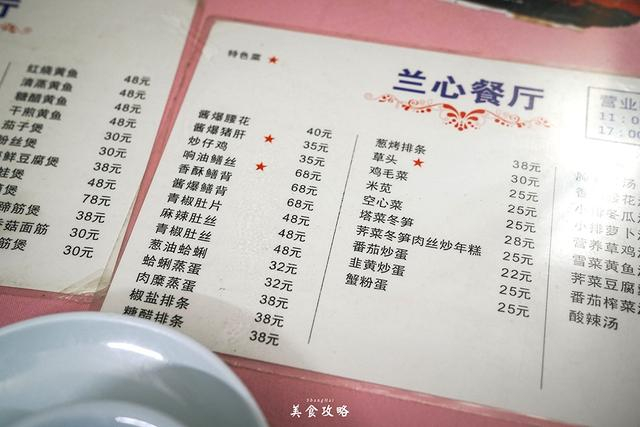 红烧黄鱼 48元
清蒸黄鱼 48元
糖醋黄鱼 48元
干煎黄鱼 48元
茄子煲 30元
粉丝煲 30元
鲜豆腐煲 38元
煲 48元
煲 78元
蹄筋煲 38元
香菇面筋 30元
筋煲 30元
特色菜
兰心餐厅
营业
11:0
17:0
酱爆腰花 40元
酱爆猪肝 35元
炒仔鸡 35元
响油鳝丝 68元
香酥鳝背 68元
酱爆鳝背 68元
青椒肚片 48元
麻辣肚丝 48元
青椒肚丝 48元
葱油蛤蜊 32元
蛤蜊蒸蛋 32元
肉糜蒸蛋 38元
椒盐排条 38元
糖醋排条 38元
葱烤排条 38元
草头 30元
鸡毛菜 25元
米苋 25元
空心菜 25元
塔菜冬笋 28元
荠菜冬笋肉丝炒年糕 25元
番茄炒蛋 22元
韭黄炒蛋 25元
蟹粉蛋 25元
汤
小排冬瓜
小排萝卜
营养草鸡
雪菜黄鱼
荠菜豆腐
番茄榨菜
酸辣汤
ShangHai
美食攻略